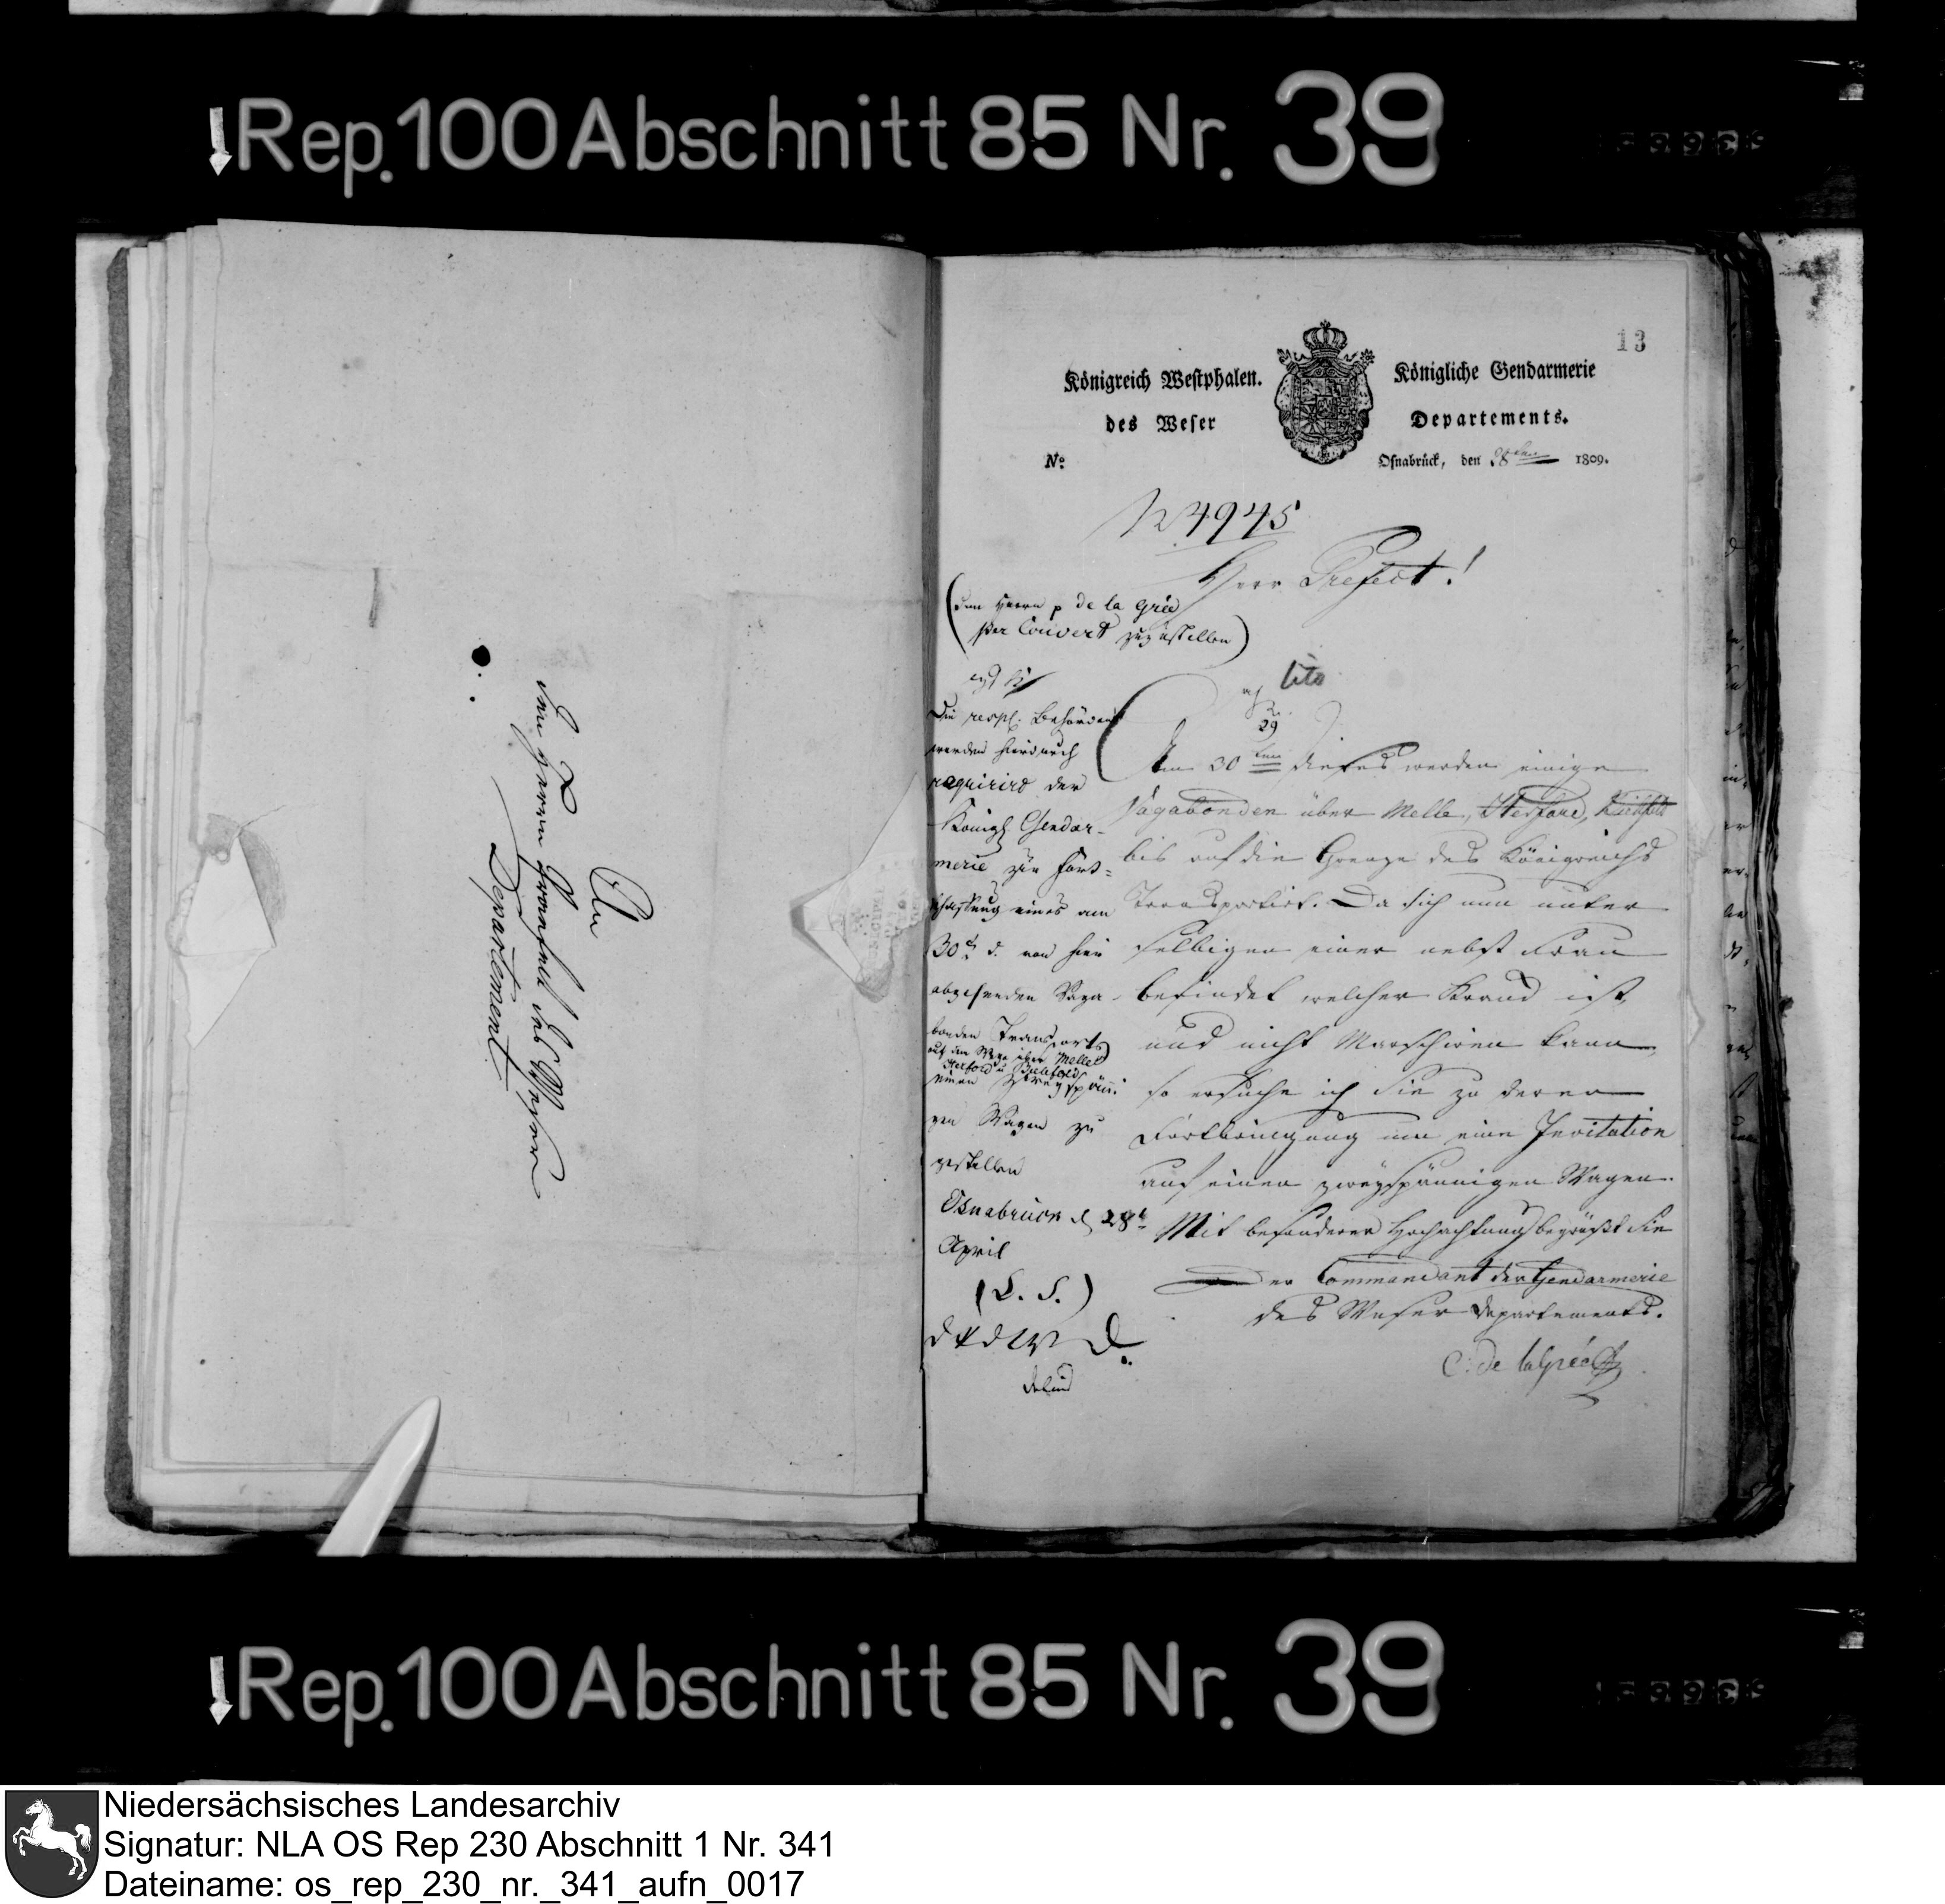 Rep. 100 Abschnitt 85 Nr. 39
An
den Herrn Praefect des Weser
Departement
13
Königreich Westphalen.
Königliche Gendarmerie
des Weser
Departements.
No:
Osnabrück, den 28ten 1809.
N 4945
Herr Prefect!
(dem Herrn p de la Grée
per Couvert zuzustellen)
cito
29
Die resp. Behörden
werden hierdurch
requirirt der
Königl. Gendar-
merie zur Fort-
schaffung eines am
30t d. von hier
abgehenden Vaga-
bonden Transports
auf dem Wege über Melle
Herford u Bielefeld
einen zweyspänni-
gen Wagen zu
gestellen
Osnabrück d 28t
April
(L. S.)
Am 30ten dieses werden einige
Vagabonden über Melle, Herford, Bielefeld
bis auf die Grenze des Königreichs
Transportirt. Da sich nun unter
selbigen einer nebst Frau
befindet welcher Krank ist,
und nicht Marschiren kann,
so ersuche ich Sie zu deren
Fortbringung um eine Invitation
auf einen zweyspännigen Wagen.
Mit besonderer Hochachtung begrüßt Sie
Der Commandant der Gendarmerie
des Weser Departements.
C. de la Grée
Rep. 100 Abschnitt 85 Nr. 39
Niedersächsisches Landesarchiv
Signatur: NLA OS Rep 230 Abschnitt 1 Nr. 341
Dateiname: os_rep_230_nr._341_aufn_0017